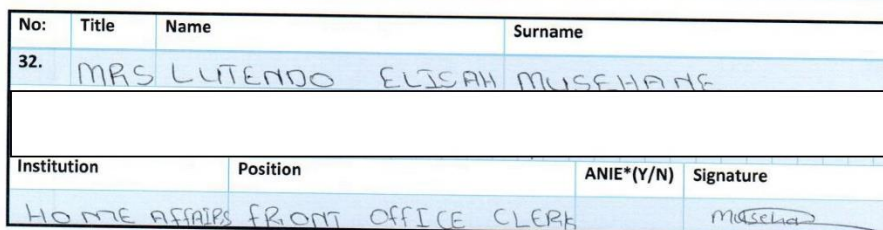 No: Title Name Surname
32. MRS LUTENDO ELISAH MUSEHANE
Institution Position ANIE*(Y/N) Signature
HOME AFFAIRS FRONT OFFICE CLERK